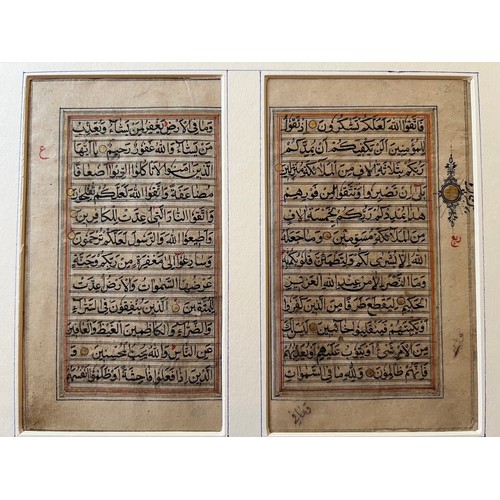 فاتقوا الله لعلكم تشكرون اذ تقول
للمؤمنين الن يكفيكم ان يمدكم
ربكم بثلثة الاف من الملائكة منزلين
بلى ان تصبروا وتتقوا من فورهم
هذا يمددكم ربكم بخمسة الاف
من الملائكة مسومين وما جعله
الله الا بشرى لكم ولتطمئن قلوبكم به
وما النصر الا من عند الله العزيز
الحكيم ليقطع طرفا من الذين كفروا
او يكبتهم فينقلبوا خائبين ليس لك
من الامر شيء او يتوب عليهم او يعذبهم
فانهم ظالمون ولله ما في السموات
ربع
وما في الارض يغفر لمن يشاء ويعذب
من يشاء والله غفور رحيم يا ايها
الذين امنوا لا تاكلوا الربوا اضعافا
مضاعفة واتقوا الله لعلكم تفلحون
واتقوا النار التي اعدت للكافرين
واطيعوا الله والرسول لعلكم ترحمون
وسارعوا الى مغفرة من ربكم وجنة
عرضها السموات والارض اعدت
للمتقين الذين ينفقون في السراء
والضراء والكاظمين الغيظ والعافين
عن الناس والله يحب المحسنين و
الذين اذا فعلوا فاحشة او ظلموا انفسهم
ع